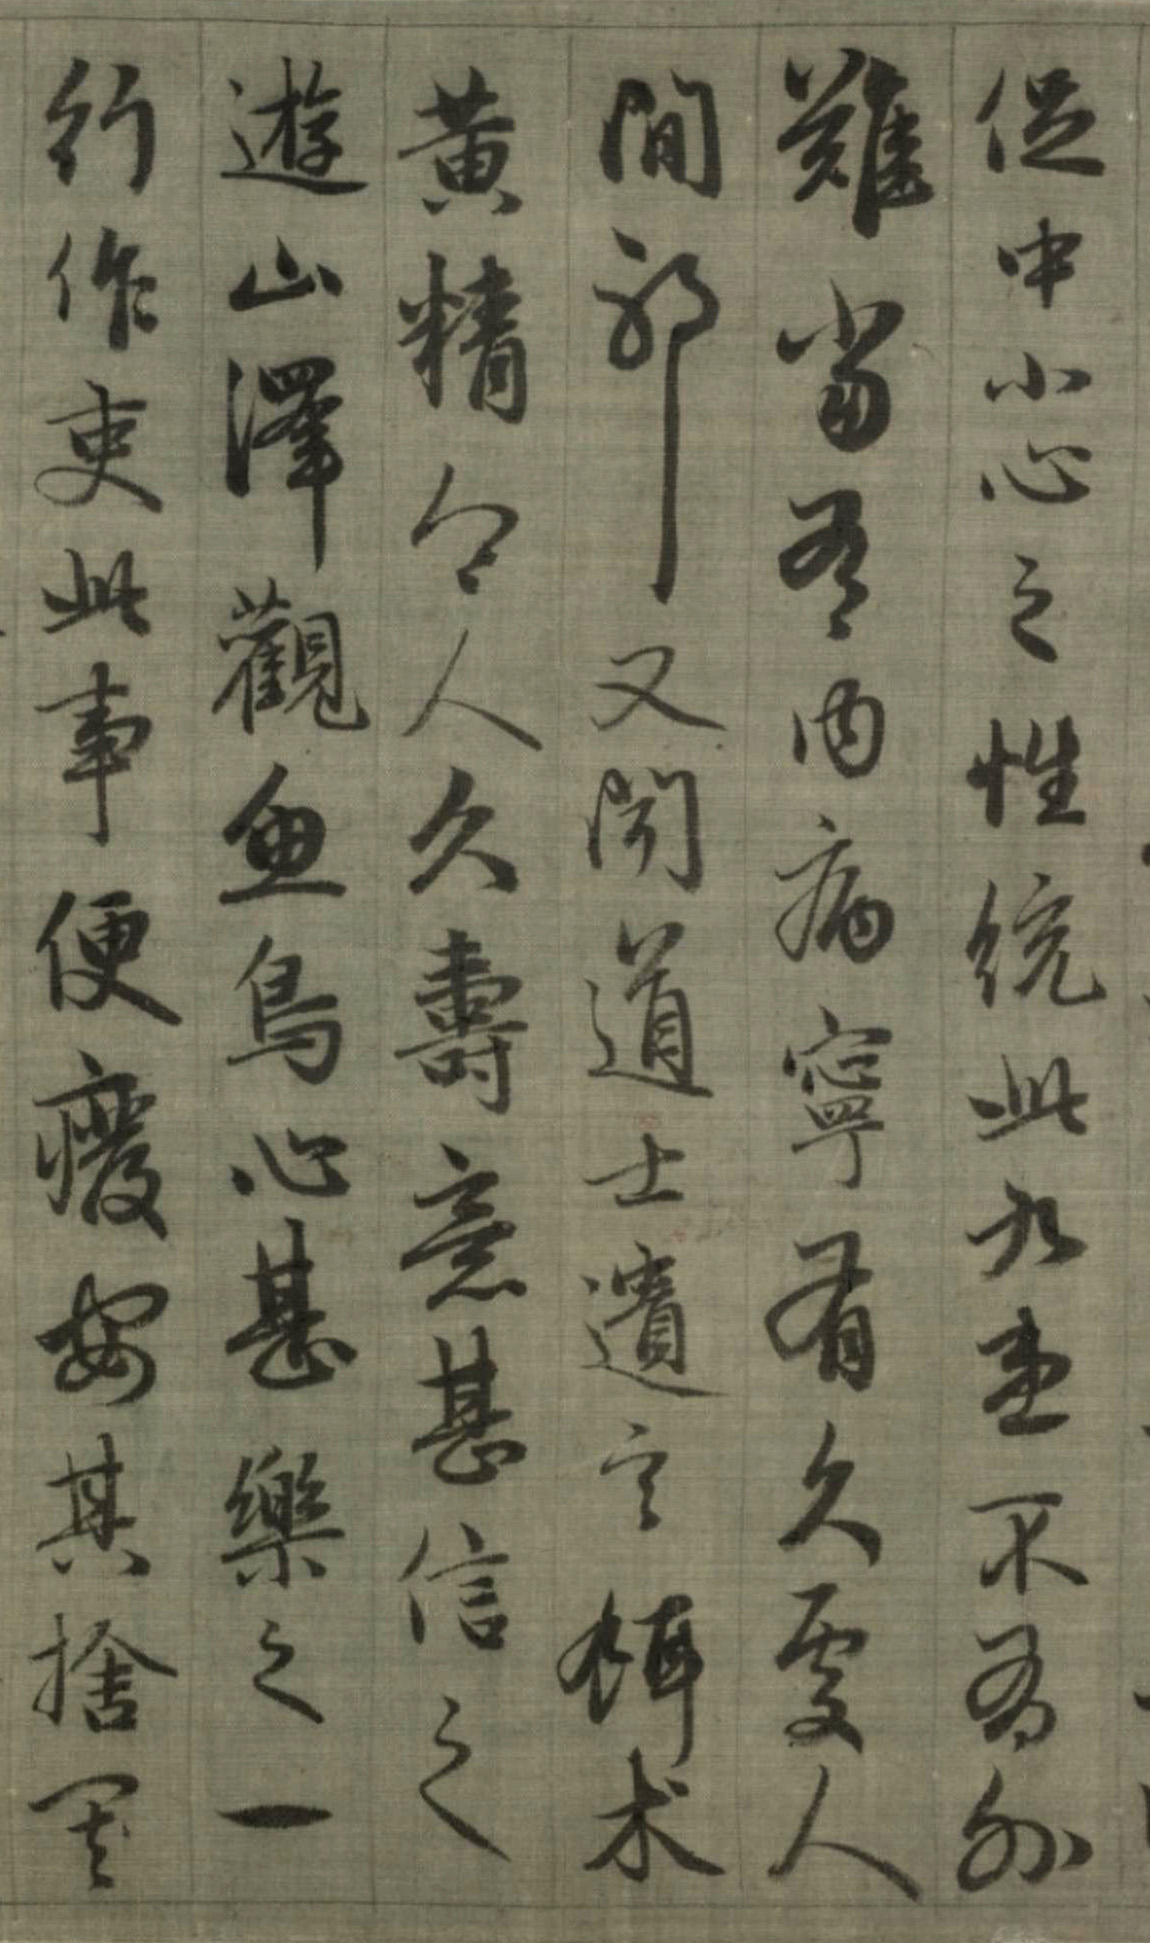 促中小心之性統此九患不有外
難當有内病寧有久處人
間邪又聞道士遺言餌术
黄精令人久壽意甚信之
遊山澤觀魚鳥心甚樂之一
行作吏此事便廢安其捨